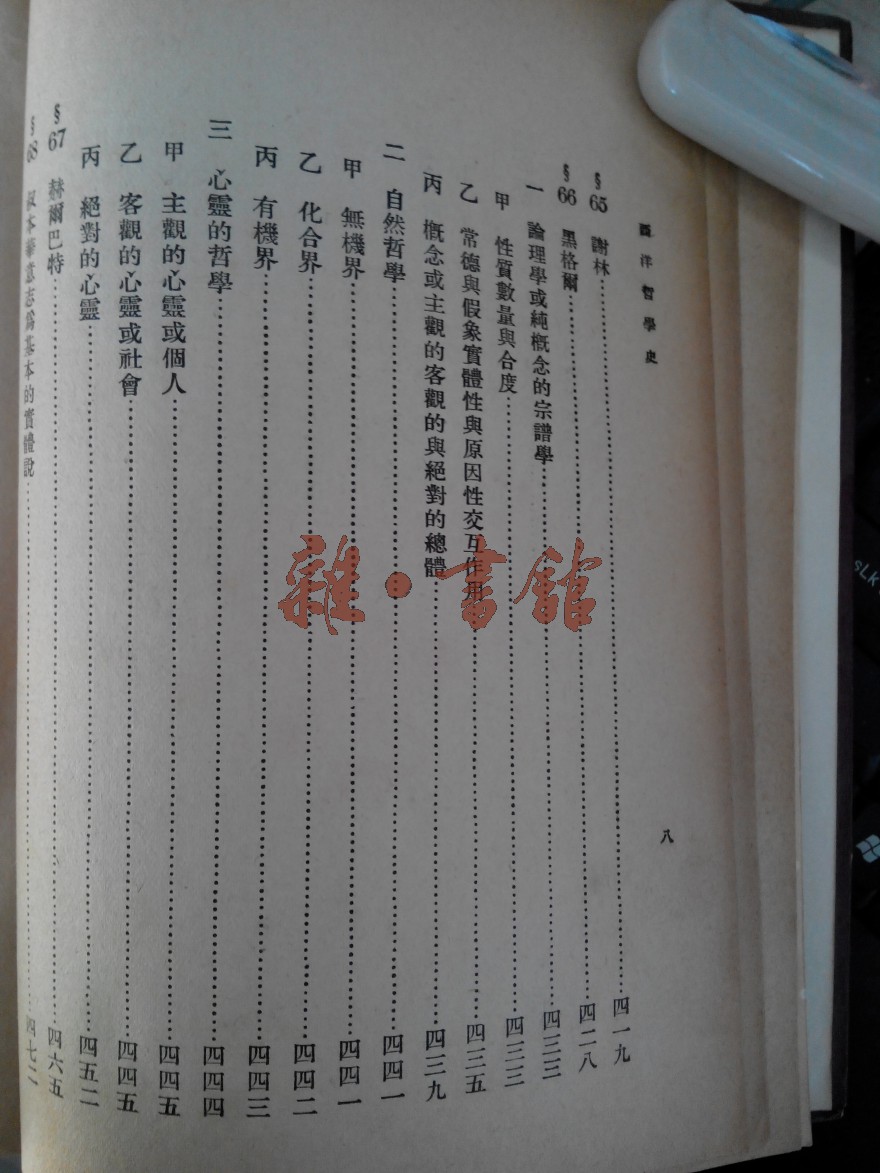 西洋哲學史
八
§65 謝林……四一九
§66 黑格爾……四二八
一 論理學或純概念的宗譜學……四三三
甲 性質數量與合度……四三三
乙 常德與假象實體性與原因性交互作用……四三五
丙 概念或主觀的客觀的與絕對的總體……四三九
二 自然哲學……四四一
甲 無機界……四四一
乙 化合界……四四二
丙 有機界……四四三
三 心靈的哲學……四四四
甲 主觀的心靈或個人……四四五
乙 客觀的心靈或社會……四四五
丙 絕對的心靈……四五二
§67 赫爾巴特……四六五
§68 叔本華意志爲基本的實體說……四七二
雜·書館